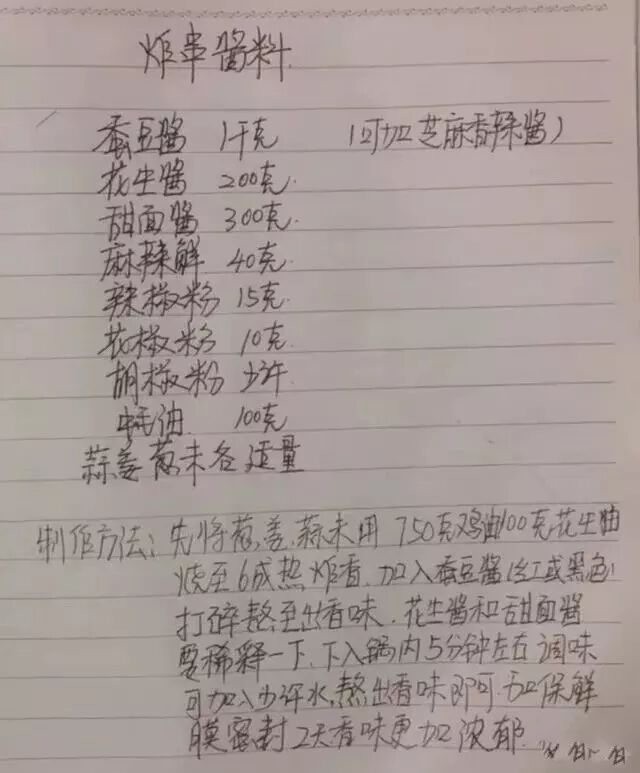 炸串酱料
蚕豆酱 1千克 (可加芝麻香辣酱)
花生酱 200克.
甜面酱 300克.
麻辣鲜 40克
辣椒粉 15克.
花椒粉 10克.
胡椒粉 少许
蚝油 100克
蒜姜葱末各适量
制作方法: 先将葱、姜、蒜末用 750克鸡油100克花生油
烧至6成热 炸香. 加入蚕豆酱(红或黑色)
打碎熬至出香味. 花生酱和甜面酱
要稀释一下. 下入锅内5分钟左右 调味
可加入少许水, 熬出香味即可. 加保鲜
膜密封 2天香味更加浓郁.